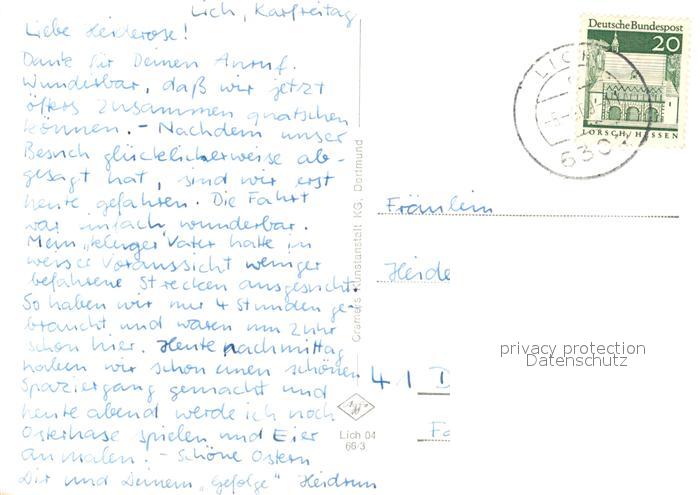 Lich, Karfreitag
Liebe Heiderose!
Danke für Deinen Anruf.
Wunderbar, daß wir jetzt
öfters zusammen quatschen
können. – Nachdem unser
Besuch glücklicherweise ab-
gesagt hat, sind wir erst
heute gefahren. Die Fahrt
war einfach wunderbar.
Mein „kluger" Vater hatte in
weiser Voraussicht weniger
befahrene Strecken ausgesucht.
So haben wir nur 4 Stunden ge-
braucht und waren um 2 Uhr
schon hier. Heute nachmittag
haben wir schon einen schönen
Spaziergang gemacht und
heute abend werde ich noch
Osterhase spielen und Eier
anmalen. – Schöne Ostern
Dir und Deinem „Gefolge" Heidrun
Cramers Kunstanstalt KG, Dortmund
Lich 04
66-3
Deutsche Bundespost
20
LORSCH/HESSEN
LICH
6302
Fräulein
Heide
privacy protection
Datenschutz
41 D